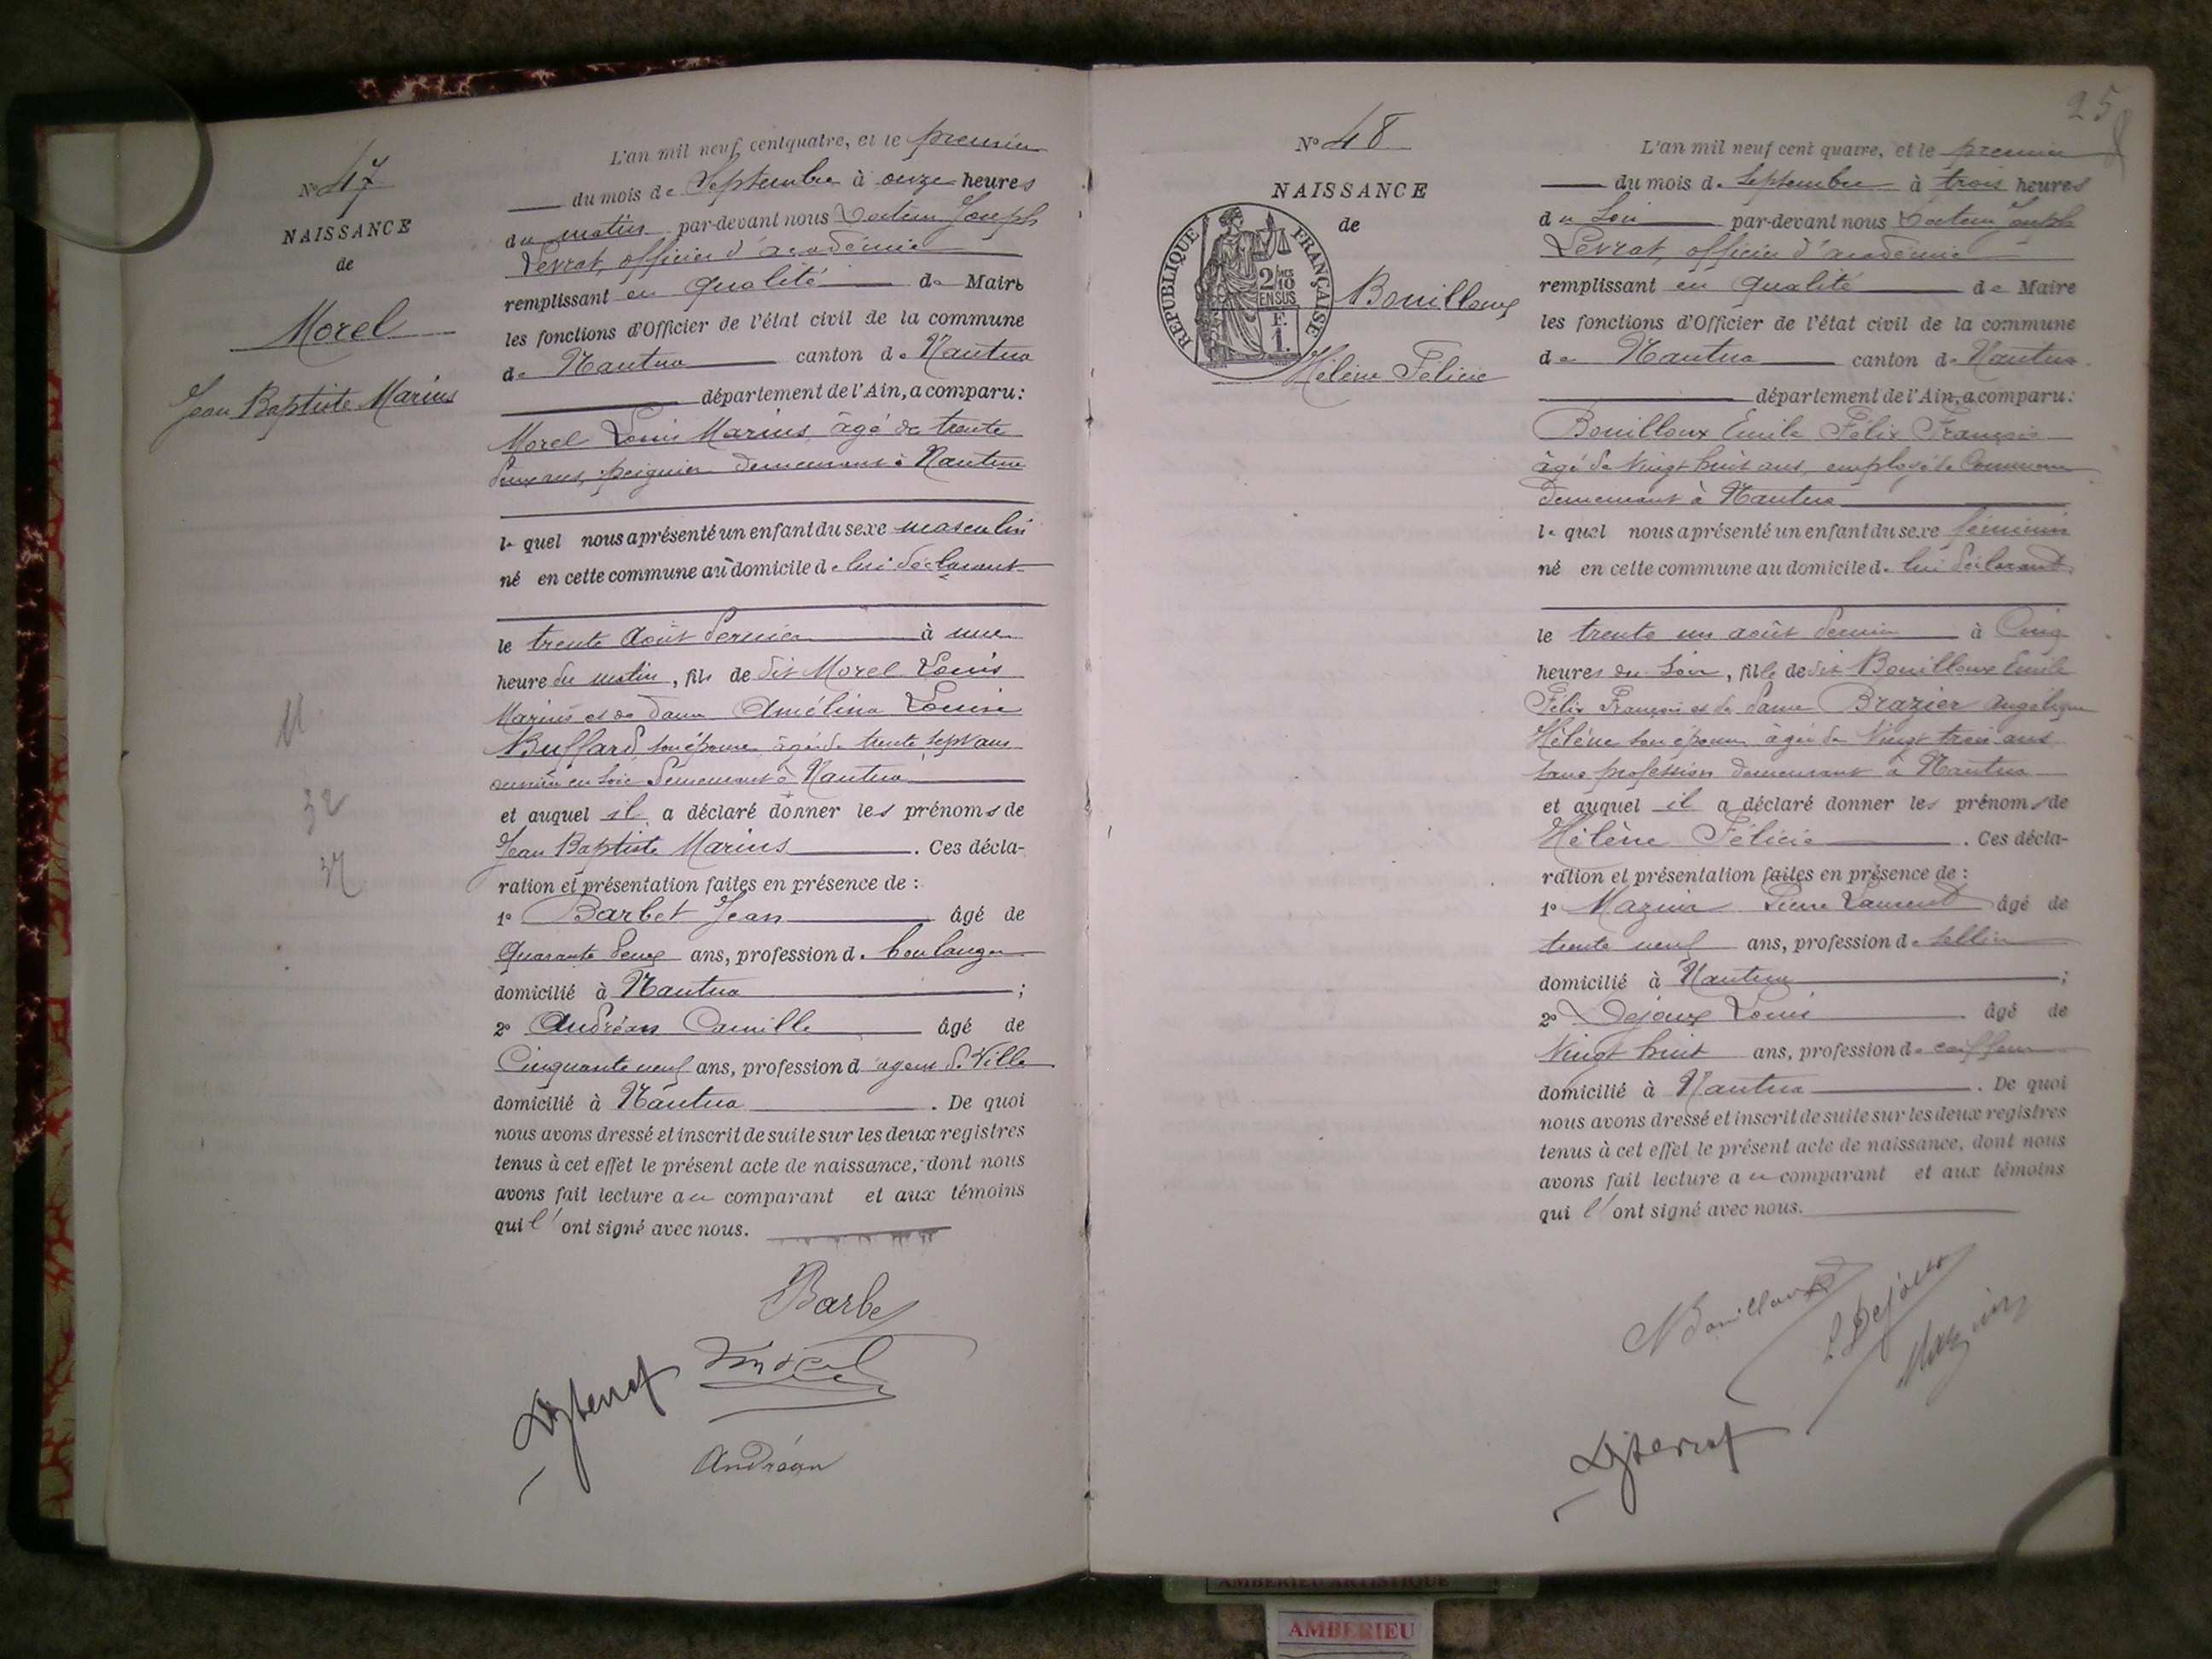 N° 47
NAISSANCE
de
Morel
Jean Baptiste Marius
11
32
37
L'an mil neuf cent quatre, et le premier
du mois de Septembre à onze heures
du matin par-devant nous Docteur Joseph
Levrat, officier d'académie
remplissant en qualité de Maire
les fonctions d'Officier de l'état civil de la commune
de Nantua canton de Nantua
département de l'Ain, a comparu:
Morel Louis Marius, âgé de trente
deux ans, peignier demeurant à Nantua
le quel nous a présenté un enfant du sexe masculin
né en cette commune au domicile de lui déclarant
le trente août dernier à une
heure du matin, fils de dit Morel Louis
Marius et de dame Amélina Louise
Buffard, son épouse âgée de trente sept ans
ouvrière en soie demeurant à Nantua
et auquel il a déclaré donner les prénoms de
Jean Baptiste Marius. Ces décla-
ration et présentation faites en présence de :
1° Barbet Jean âgé de
Quarante deux ans, profession de boulanger
domicilié à Nantua ;
2° Andréan Camille âgé de
Cinquante neuf ans, profession d'agent de Ville
domicilié à Nantua. De quoi
nous avons dressé et inscrit de suite sur les deux registres
tenus à cet effet le présent acte de naissance, dont nous
avons fait lecture au comparant et aux témoins
qui l'ont signé avec nous.
Barbet
Morel
Andréan
25
N° 48
NAISSANCE
de
RÉPUBLIQUE FRANÇAISE
2/10
EN SUS
F.
1.
Bouilloux
Hélène Félicie
L'an mil neuf cent quatre, et le premier
du mois de Septembre à trois heures
du Soir par-devant nous Docteur Joseph
Levrat, officier d'académie
remplissant en qualité de Maire
les fonctions d'Officier de l'état civil de la commune
de Nantua canton de Nantua
département de l'Ain, a comparu:
Bouilloux Emile Félix François
âgé de Vingt huit ans, employé de Commerce
demeurant à Nantua
le quel nous a présenté un enfant du sexe féminin
né en cette commune au domicile de lui déclarant
le trente un août dernier à Cinq
heures du Soir, fille de dit Bouilloux Emile
Félix François et de Dame Brazier Angélique
Hélène son épouse âgée de Vingt trois ans
sans profession demeurant à Nantua
et auquel il a déclaré donner les prénoms de
Hélène Félicie. Ces décla-
ration et présentation faites en présence de :
1° Mazuir Pierre Laurent âgé de
trente neuf ans, profession de sellier
domicilié à Nantua ;
2° Dejoux Louis âgé de
Vingt huit ans, profession de coiffeur
domicilié à Nantua. De quoi
nous avons dressé et inscrit de suite sur les deux registres
tenus à cet effet le présent acte de naissance, dont nous
avons fait lecture au comparant et aux témoins
qui l'ont signé avec nous.
Bouilloux
L Dejoux
AMBERIEU ARTISTIQUE
AMBERIEU